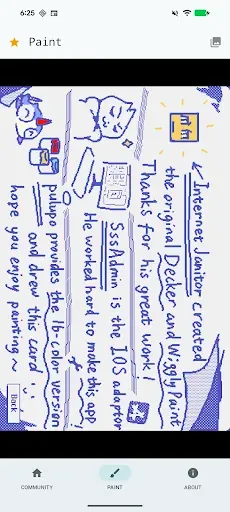 6:25
Paint
Internet Janitor created
the original Decker and WigglyPaint
Thanks for his great work!
SssAdmin is the IOS adaptor
He worked hard to make this app!
pulupo provides the 16-color version
and drew this card :)
hope you enjoy painting~
Back
COMMUNITY
PAINT
ABOUT